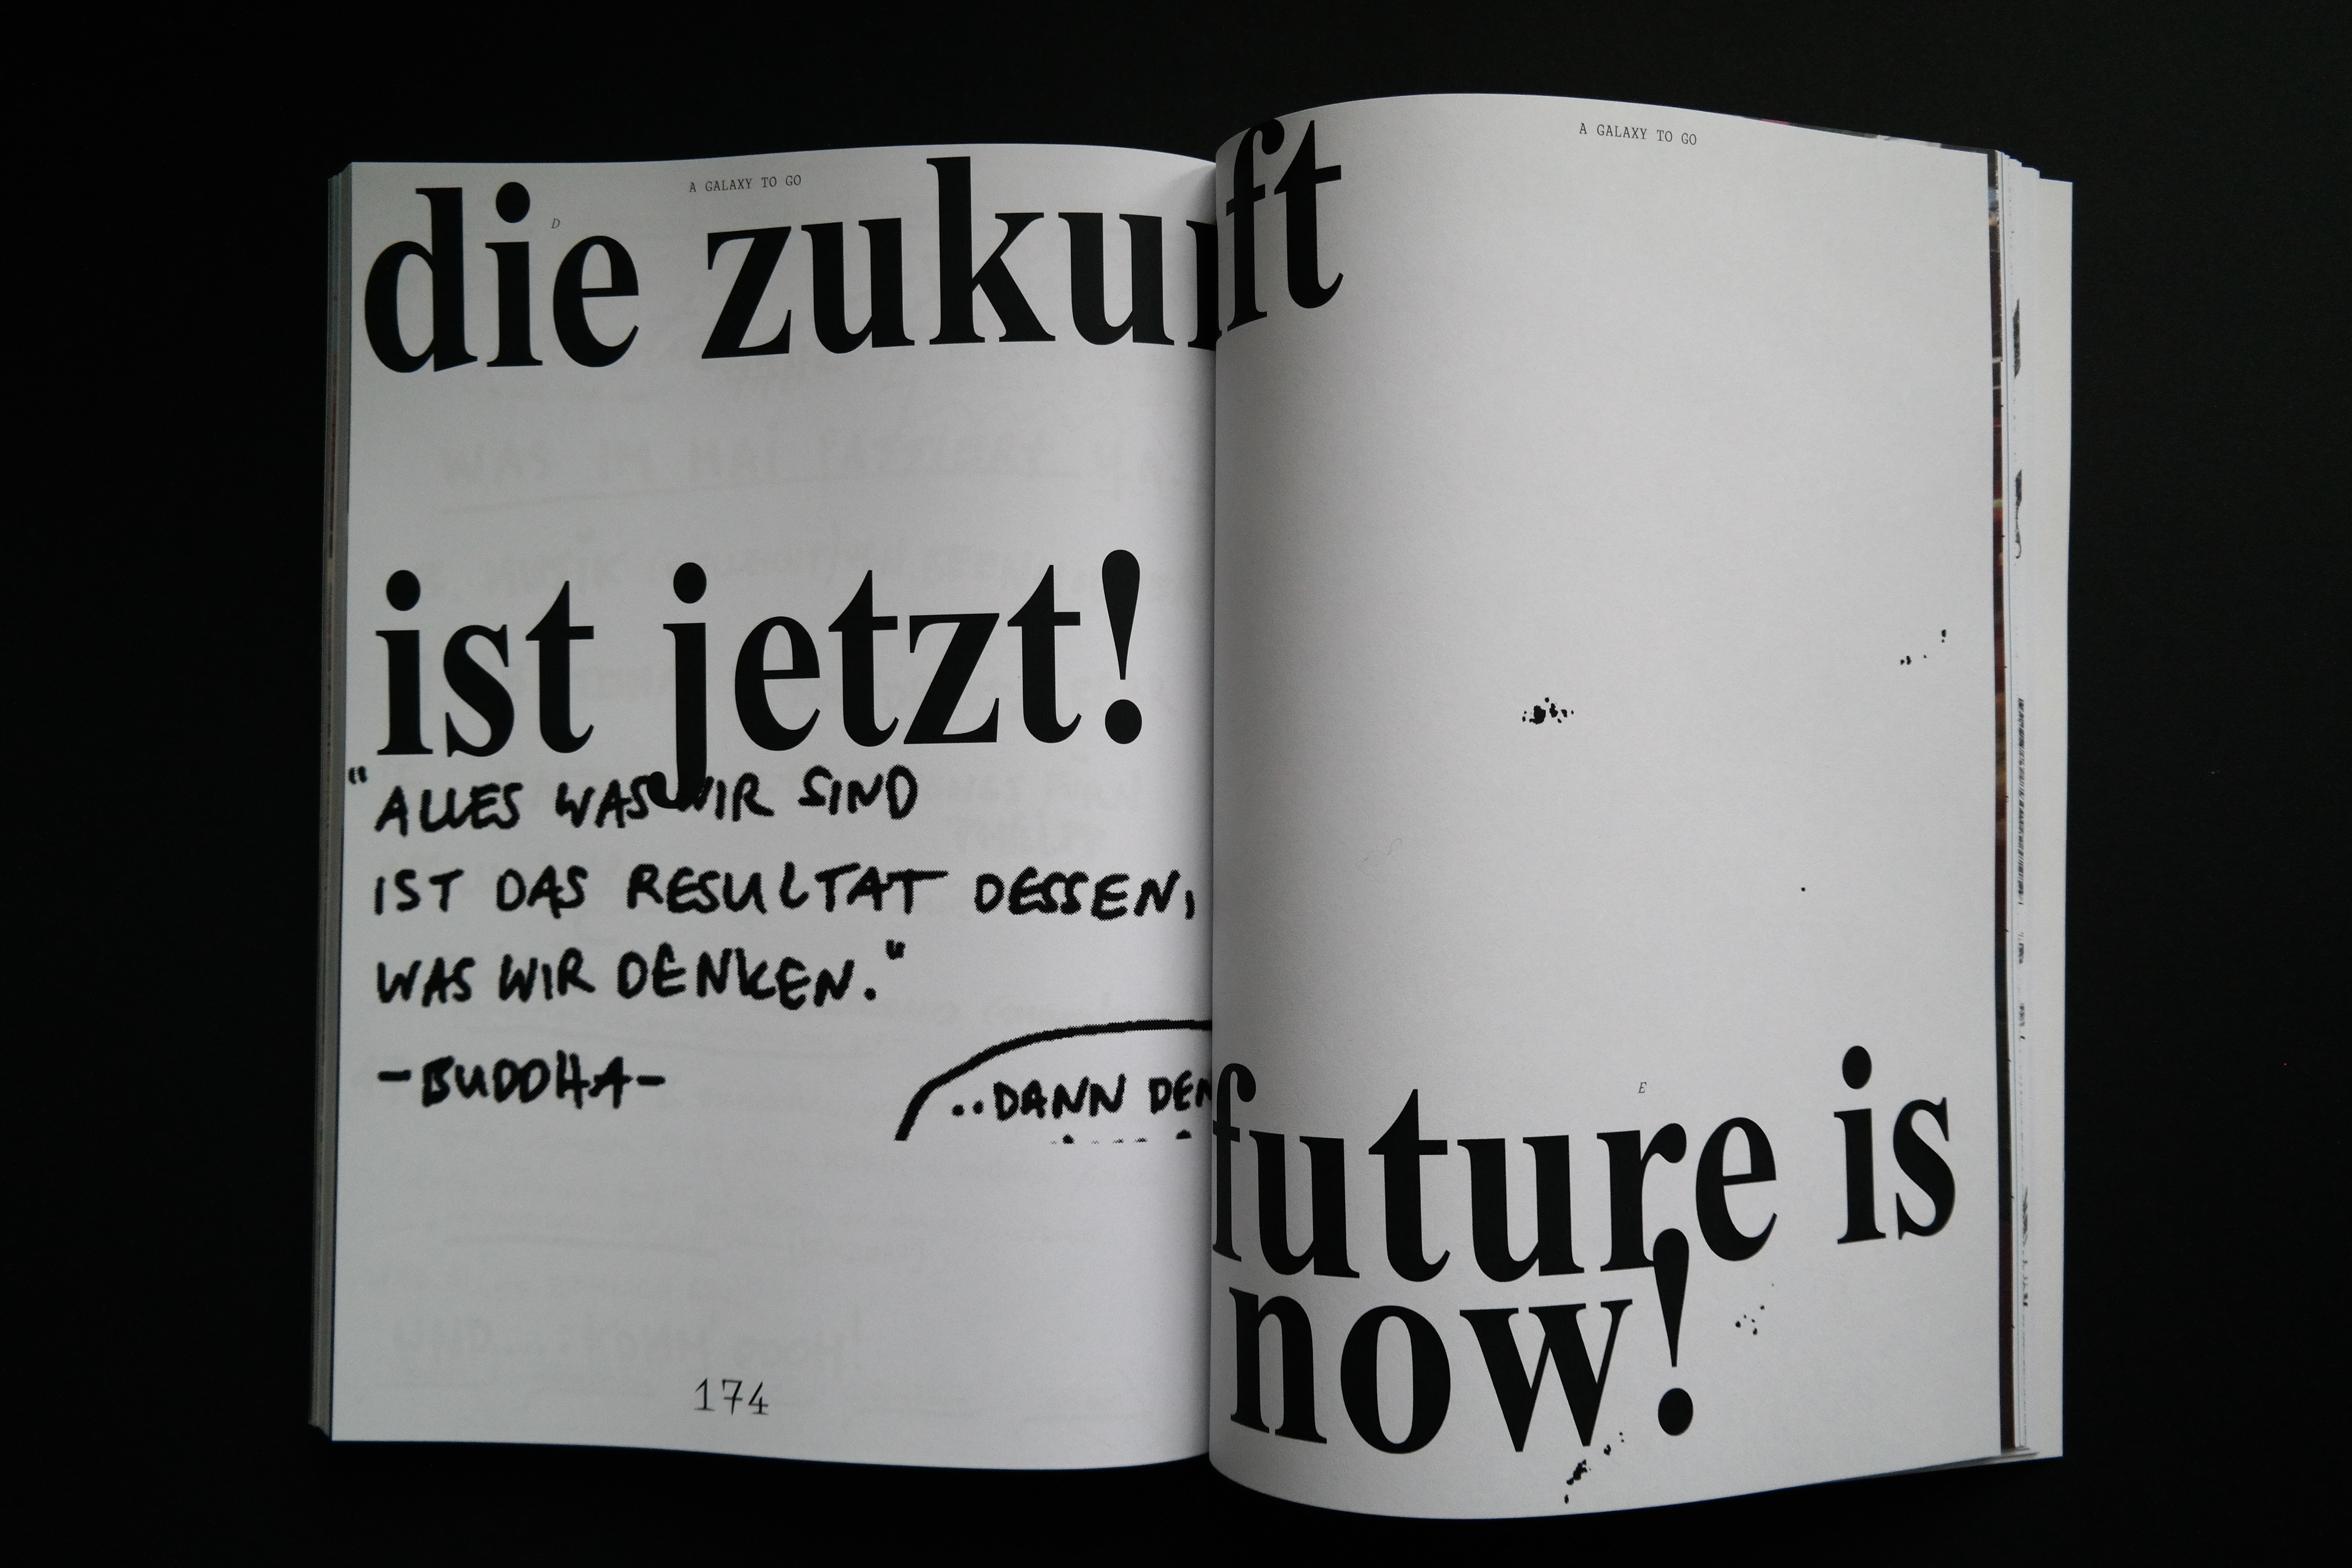 A GALAXY TO GO
D
die zukunft
ist jetzt!
"ALLES WAS WIR SIND
IST DAS RESULTAT DESSEN,
WAS WIR DENKEN."
-BUDDHA-
..DANN DEN
174
A GALAXY TO GO
E
future is
now!